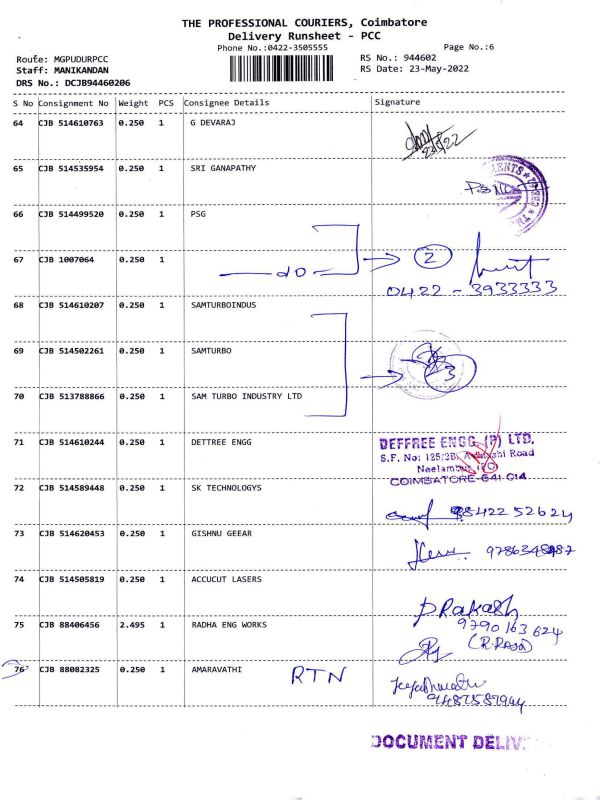 THE PROFESSIONAL COURIERS, Coimbatore
Delivery Runsheet - PCC
Phone No.:0422-3505555
Page No.:6
Route: MGPUDURPCC
RS No.: 944602
Staff: MANIKANDAN
RS Date: 23-May-2022
DRS No.: DCJB94460206
S No Consignment No Weight PCS Consignee Details Signature
64 CJB 514610763 0.250 1 G DEVARAJ
65 CJB 514535954 0.250 1 SRI GANAPATHY
66 CJB 514499520 0.250 1 PSG
67 CJB 1007064 0.250 1 do 2
0422 - 3933333
68 CJB 514610207 0.250 1 SAMTURBOINDUS
69 CJB 514502261 0.250 1 SAMTURBO 3
70 CJB 513788866 0.250 1 SAM TURBO INDUSTRY LTD
71 CJB 514610244 0.250 1 DETTREE ENGG
DEFFREE ENGG. (P) LTD.
S.F. No: 125/2B, Avinashi Road
Neelambur (PO)
COIMBATORE-641 014
72 CJB 514589448 0.250 1 SK TECHNOLOGYS
73 CJB 514620453 0.250 1 GISHNU GEEAR
74 CJB 514505819 0.250 1 ACCUCUT LASERS
PRakash
75 CJB 88406456 2.495 1 RADHA ENG WORKS
9790 163 624
76 CJB 88082325 0.250 1 AMARAVATHI RTN
DOCUMENT